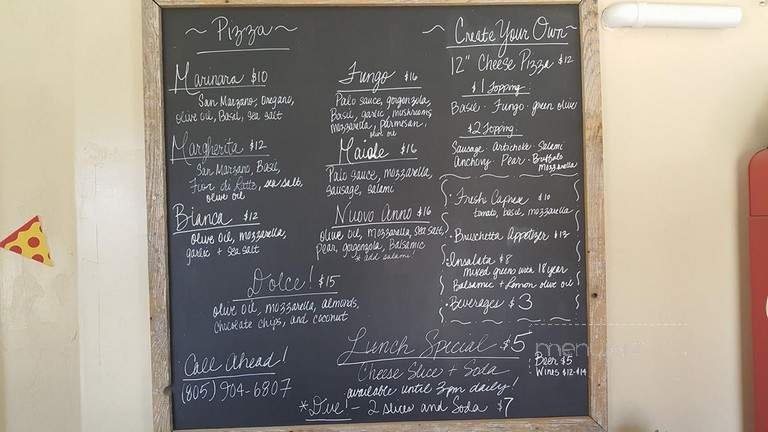 ~ Pizza ~
Marinara $10
San Marzano, Oregano,
olive oil, Basil, sea salt
Margherita $12
San Marzano, Basil,
Fior di Latte, sea salt,
olive oil
Bianca $12
olive oil, mozzarella,
garlic + sea salt
Fungo $16
Palo sauce, gorgonzola,
Basil, garlic, mushrooms
mozzarella, Parmesan,
olive oil
Maiale $16
Palo sauce, mozzarella,
sausage, salami
Nuovo Anno $16
olive oil, mozzarella, sea salt,
pear, gorgonzola, Balsamic
* add salami!
Dolce! $15
olive oil, mozzarella, almonds,
chocolate chips, and coconut
~ Create Your Own ~
12" Cheese Pizza $12
$1 Topping:
Basil · Fungo · green olives
$2 Topping:
Sausage · Artichoke · Salami
Anchovy · Pear · Buffalo
mozzarella
· Fresh Caprese $10
tomato, basil, mozzarella
· Bruschetta Appetizer $13
· Insalata $8
mixed greens with 18 year
Balsamic + Lemon olive oil
· Beverages $3
Lunch Special $5
Cheese Slice + Soda
available until 3pm daily!
* Due! - 2 slices and Soda $7
Beer $5
Wines $12-$14
Call Ahead!
(805) 904-6807